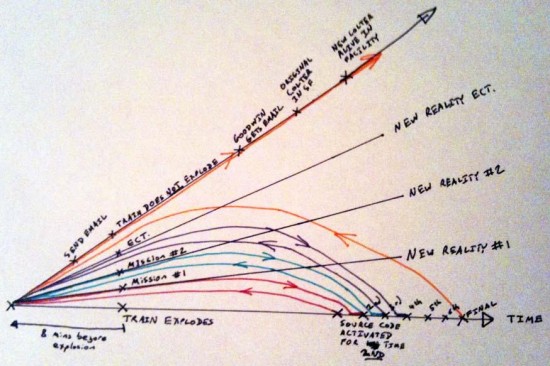 NEW COLTER
ALIVE IN
FACILITY
ORIGINAL
COLTER
IN SF
GOODWIN
GETS EMAIL
TRAIN DOES NOT EXPLODE
SEND EMAIL
NEW REALITY ECT.
ECT.
NEW REALITY #2
MISSION #2
NEW REALITY #1
MISSION #1
4th
5th
6th
FINAL
TIME
8 mins before
explosion
TRAIN EXPLODES
SOURCE CODE
ACTIVATED
FOR TIME
2ND